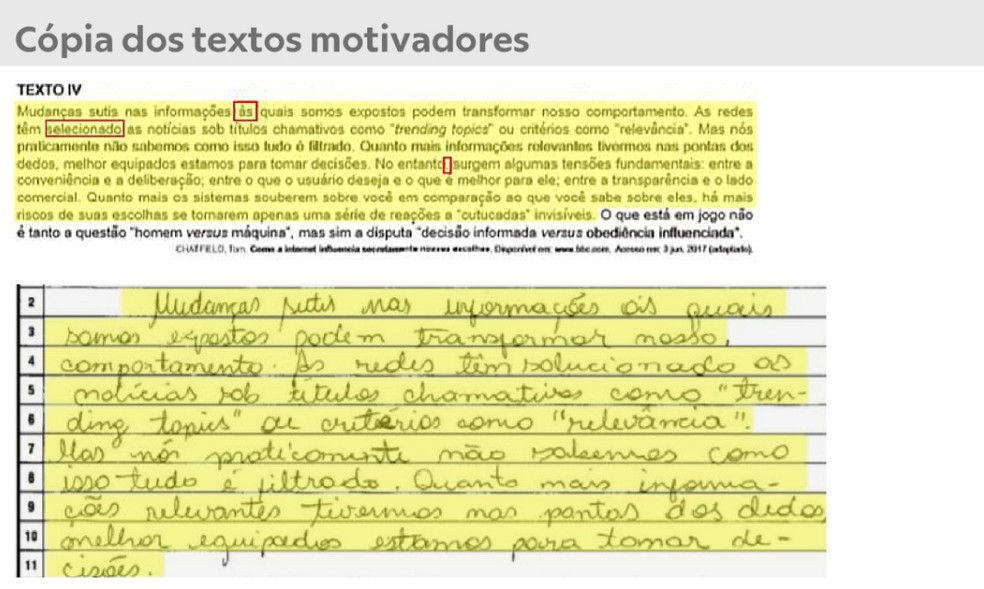 Cópia dos textos motivadores
TEXTO IV
Mudanças sutis nas informações às quais somos expostos podem transformar nosso comportamento. As redes
têm selecionado as notícias sob títulos chamativos como "trending topics" ou critérios como "relevância". Mas nós
praticamente não sabemos como isso tudo é filtrado. Quanto mais informações relevantes tivermos nas pontas dos
dedos, melhor equipados estamos para tomar decisões. No entanto surgem algumas tensões fundamentais: entre a
conveniência e a deliberação; entre o que o usuário deseja e o que é melhor para ele; entre a transparência e o lado
comercial. Quanto mais os sistemas souberem sobre você em comparação ao que você sabe sobre eles, há mais
riscos de suas escolhas se tornarem apenas uma série de reações a "cutucadas" invisíveis. O que está em jogo não
é tanto a questão "homem versus máquina", mas sim a disputa "decisão informada versus obediência influenciada".
CHATFIELD, Tom. Como a internet influencia secretamente nossas escolhas. Disponível em: www.bbc.com. Acesso em: 3 jun. 2017 (adaptado).
2 Mudanças sutis nas informações ás quais
3 somos expostos podem transformar nosso
4 comportamento. As redes têm solucionado as
5 notícias sob títulos chamativos como "tren-
6 ding topics" ou critérios como "relevância".
7 Mas nós praticamente não sabemos como
8 isso tudo é filtrado. Quanto mais informa-
9 ções relevantes tivermos nas pontas dos dedos
10 melhor equipados estamos para tomar de-
11 cisões.